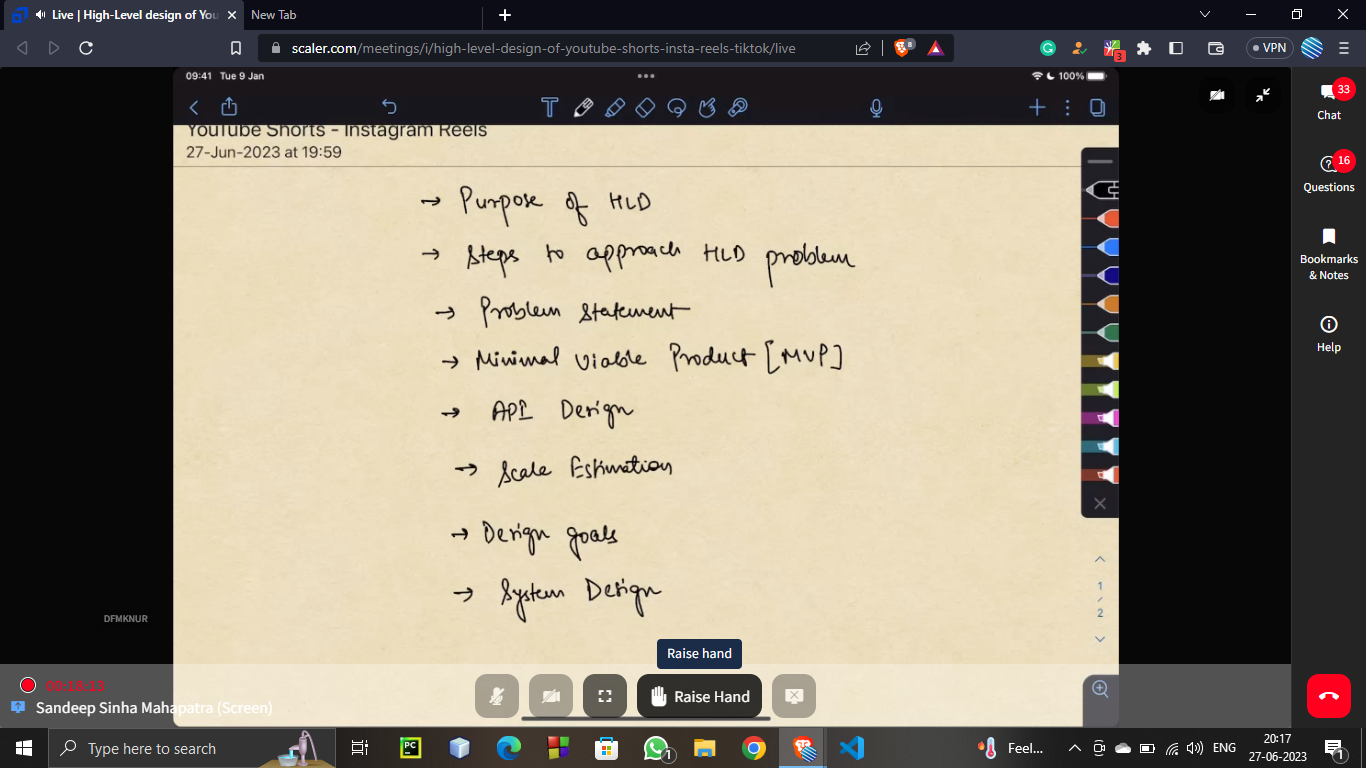 Live | High-Level design of You
New Tab
scaler.com/meetings/i/high-level-design-of-youtube-shorts-insta-reels-tiktok/live
8
3
VPN
09:41 Tue 9 Jan
100%
YouTube Shorts - Instagram Reels
27-Jun-2023 at 19:59
→ Purpose of HLD
→ Steps to approach HLD problem
→ Problem Statement
→ Minimal Viable Product [MVP]
→ API Design
→ Scale Estimation
→ Design goals
→ System Design
1
2
33
Chat
16
Questions
Bookmarks
& Notes
Help
DFMKNUR
Raise hand
Raise Hand
Sandeep Sinha Mahapatra (Screen)
Type here to search
PC
1
Feel...
ENG
20:17
27-06-2023
1